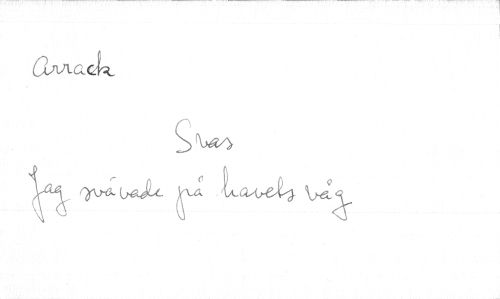 Arrack
Svas
Jag svävade på havets våg